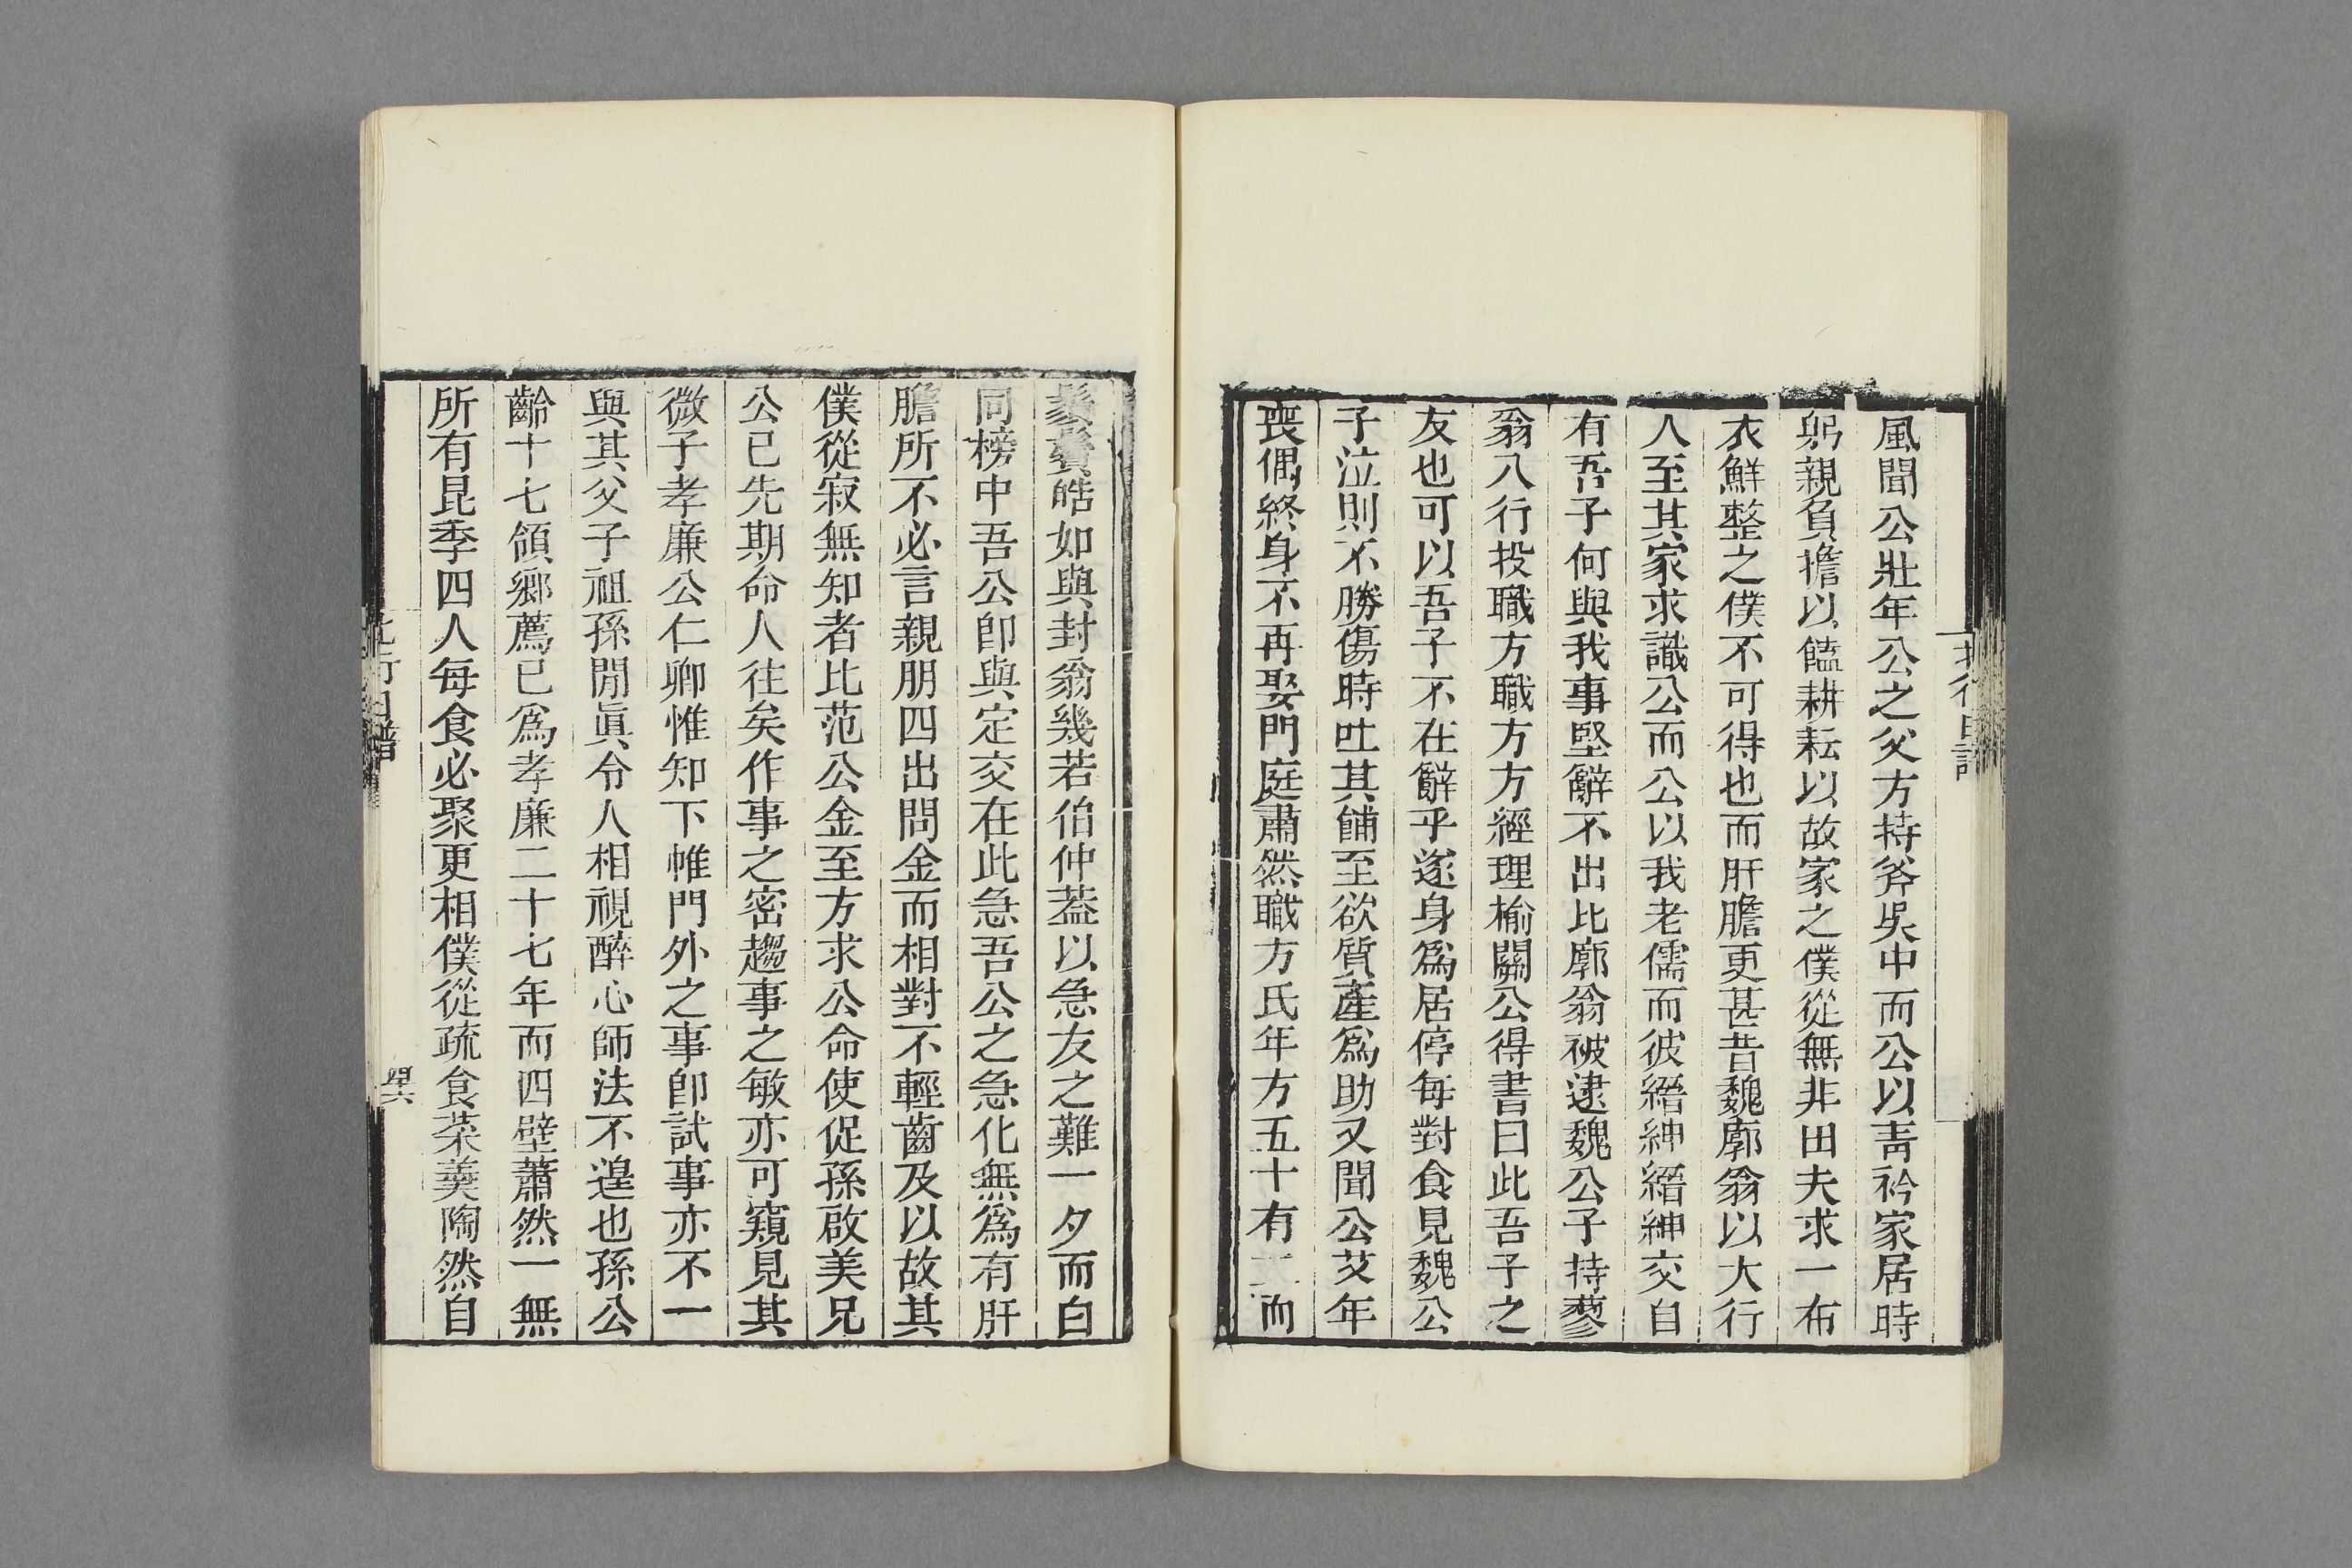 風聞公壯年公之父方持斧吳中而公以靑衿家居時
躬親負擔以饁耕耘以故家之僕從無非田夫求一布
衣鮮整之僕不可得也而肝膽更甚昔魏廓翁以大行
人至其家求識公而公以我老儒而彼縉紳縉紳交自
有吾子何與我事堅辭不出比廓翁被逮魏公子持蓼
翁八行投職方職方方經理榆關公得書曰此吾子之
友也可以吾子不在辭乎遂身爲居停每對食見魏公
子泣則不勝傷時吐其餔至欲質產爲助又聞公艾年
喪偶終身不再娶門庭肅然職方氏年方五十有二而
鬚鬢皓如與封翁幾若伯仲葢以急友之難一夕而白
同榜中吾公卽與定交在此急吾公之急化無爲有肝
膽所不必言親朋四出問金而相對不輕齒及以故其
僕從寂無知者比范公金至方求公命使促孫啟美兄
公已先期命人往矣作事之密趨事之敏亦可窺見其
微子孝廉公仁卿惟知下帷門外之事卽試事亦不一
與其父子祖孫閒眞令人相視醉心師法不遑也孫公
齡十七領鄉薦已爲孝廉二十七年而四壁蕭然一無
所有昆季四人每食必聚更相僕從疏食菜羹陶然自
四六